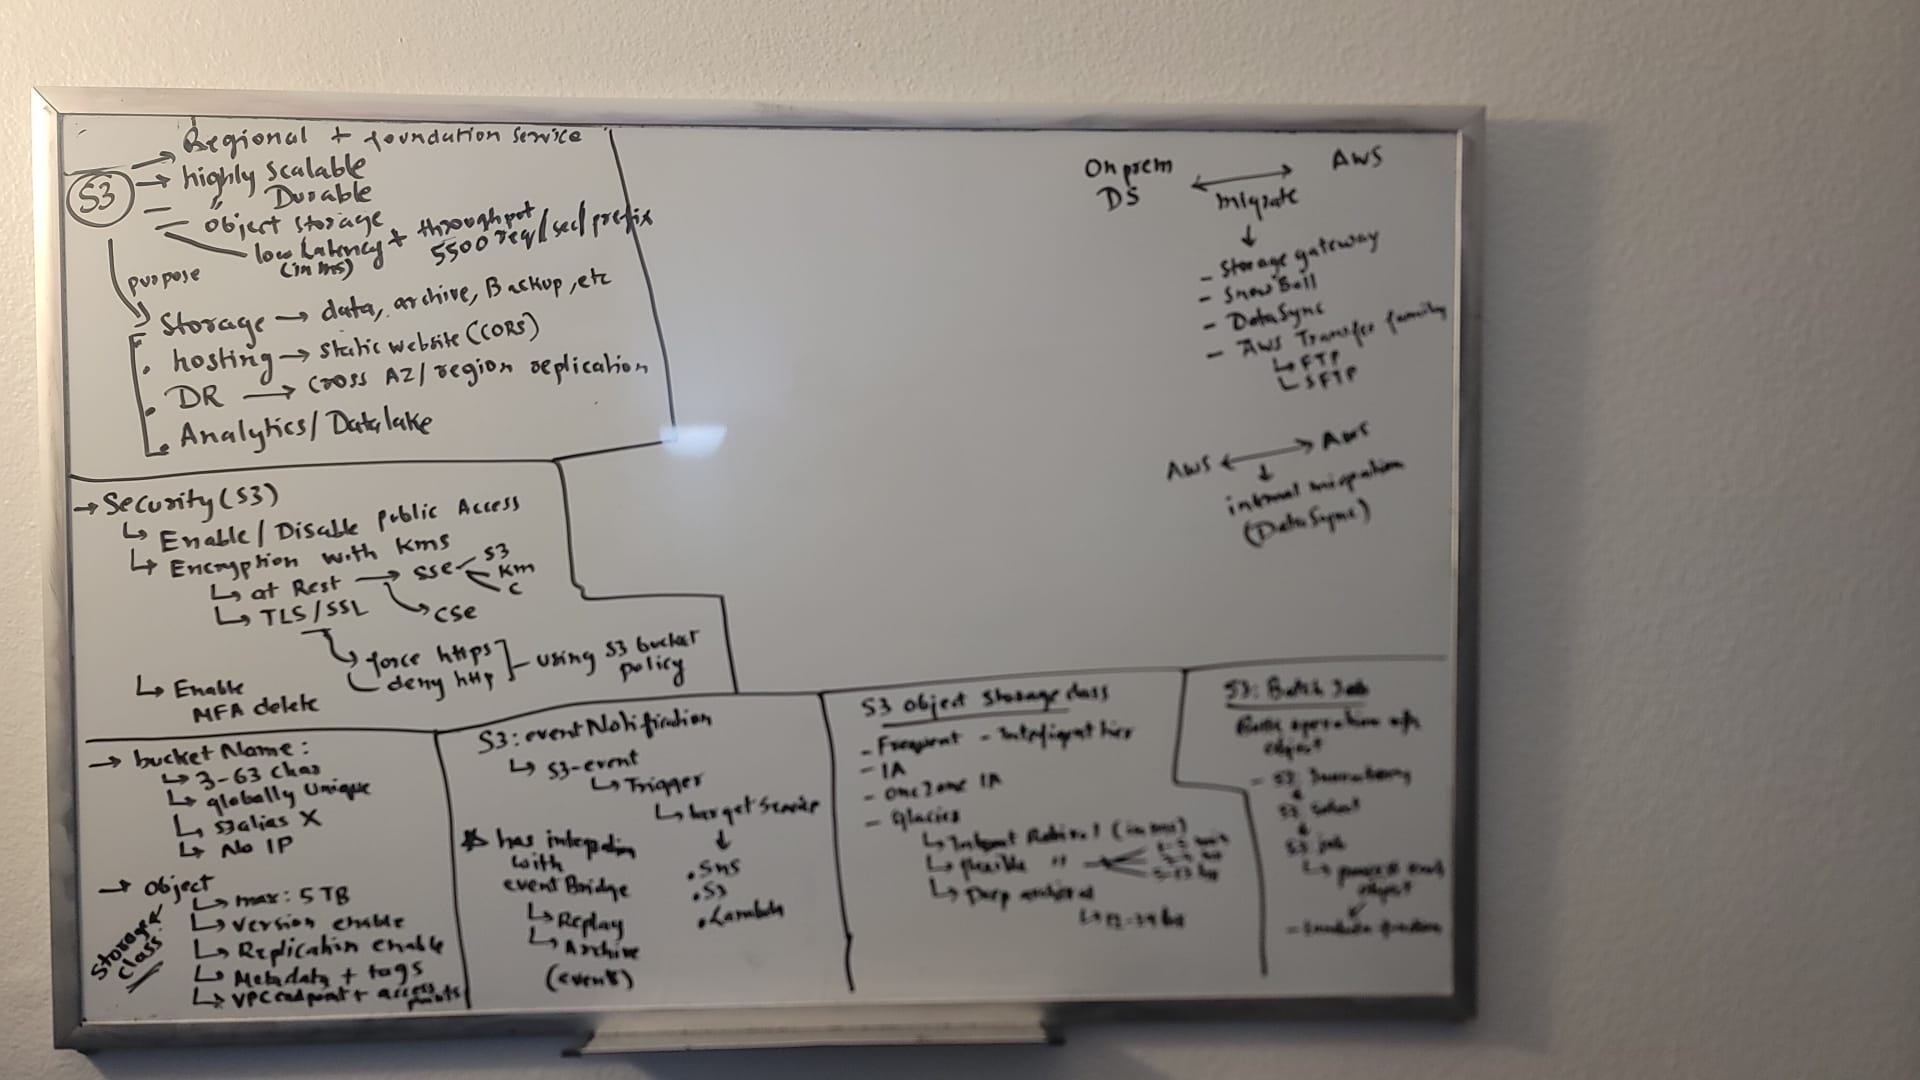 S3
→ Regional + foundation service
→ highly Scalable
— " Durable
— object storage
low Latency + throughput
(in ms) 5500 req/sec/prefix
purpose
Storage → data, archive, Backup, etc
. hosting → static website (CORS)
. DR → cross AZ/region replication
. Analytics/Datalake
→ Security (S3)
↳ Enable/Disable public Access
↳ Encryption with KMS
↳ at Rest → SSE S3
KM
C
CSE
↳ TLS/SSL
↳ force https
deny http
using S3 bucket
policy
↳ Enable
MFA delete
→ bucket Name:
↳ 3-63 char
↳ globally Unique
↳ S3alias X
↳ No IP
→ object
↳ max: 5 TB
↳ version enable
↳ Replication enable
↳ Metadata + tags
↳ VPC endpoint + access points
Storage
class
S3: event Notification
↳ S3-event
↳ Trigger
↳ target service
↓
. SNS
. S3
. Lambda
has integration
with
event Bridge
↳ Replay
↳ Archive
(events)
S3 object storage class
- Frequent - Intelligent tier
- IA
- one zone IA
- Glacier
↳ Instant Retrival (in ms)
↳ flexible "
↳ Deep archival
S3: Batch Job
object
S3 Inventory
S3 Select
S3 job
object
On prem
DS
↔
migrate
AWS
↓
- Storage gateway
- SnowBall
- DataSync
- AWS Transfer family
↳ FTP
↳ SFTP
AWS ↔ AWS
↓
internal migration
(DataSync)